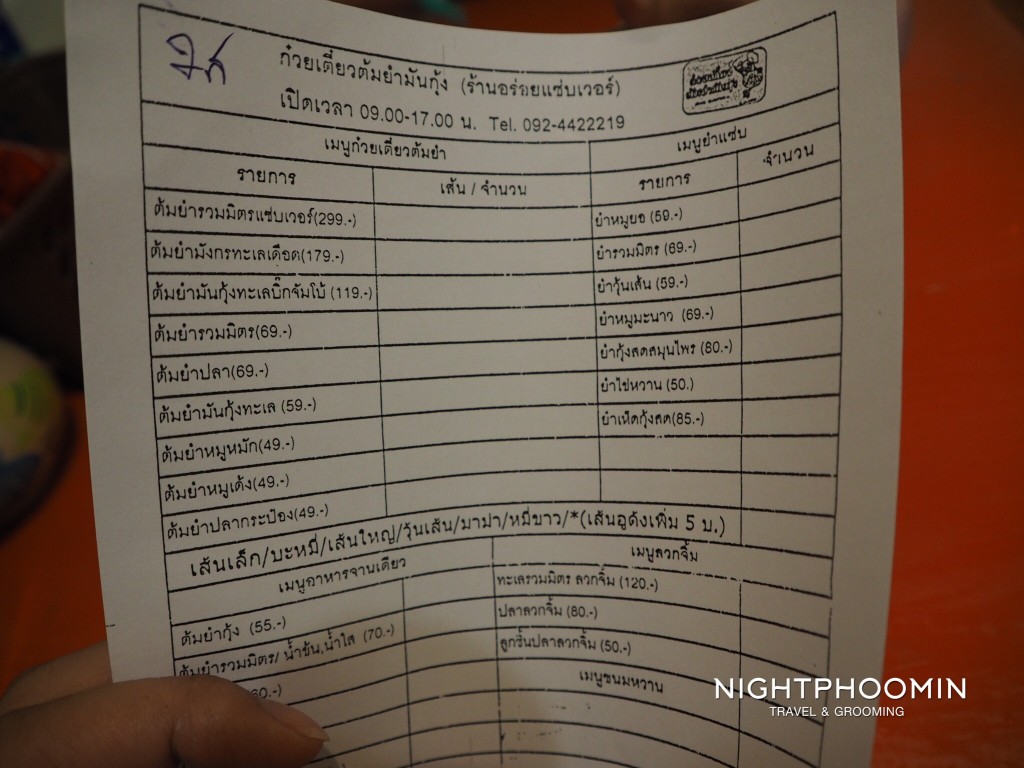 ก๋วยเตี๋ยวต้มยำมันกุ้ง (ร้านอร่อยแซ่บเวอร์)
เปิดเวลา 09.00-17.00 น. Tel. 092-4422219
เมนูก๋วยเตี๋ยวต้มยำ เมนูยำแซ่บ
รายการ เส้น / จำนวน รายการ จำนวน
ต้มยำรวมมิตรแซ่บเวอร์(299.-) ยำหมูยอ (59.-)
ต้มยำมังกรทะเลเดือด(179.-) ยำรวมมิตร (69.-)
ต้มยำมันกุ้งทะเลบิ๊กจัมโบ้ (119.-) ยำวุ้นเส้น (59.-)
ต้มยำรวมมิตร(69.-) ยำหมูมะนาว (69.-)
ต้มยำปลา(69.-) ยำกุ้งสดสมุนไพร (80.-)
ต้มยำมันกุ้งทะเล (59.-) ยำไข่หวาน (50.)
ต้มยำหมูหมัก(49.-) ยำเห็ดกุ้งสด(85.-)
ต้มยำหมูเด้ง(49.-)
ต้มยำปลากระป๋อง(49.-)
เส้นเล็ก/บะหมี่/เส้นใหญ่/วุ้นเส้น/มาม่า/หมี่ขาว/*(เส้นอูด้งเพิ่ม 5 บ.)
เมนูอาหารจานเดียว เมนูลวกจิ้ม
ทะเลรวมมิตร ลวกจิ้ม (120.-)
ต้มยำกุ้ง (55.-) ปลาลวกจิ้ม (80.-)
ต้มยำรวมมิตร/ น้ำข้น,น้ำใส (70.-) ลูกชิ้นปลาลวกจิ้ม (50.-)
60.-) เมนูขนมหวาน
NIGHTPHOOMIN
TRAVEL & GROOMING